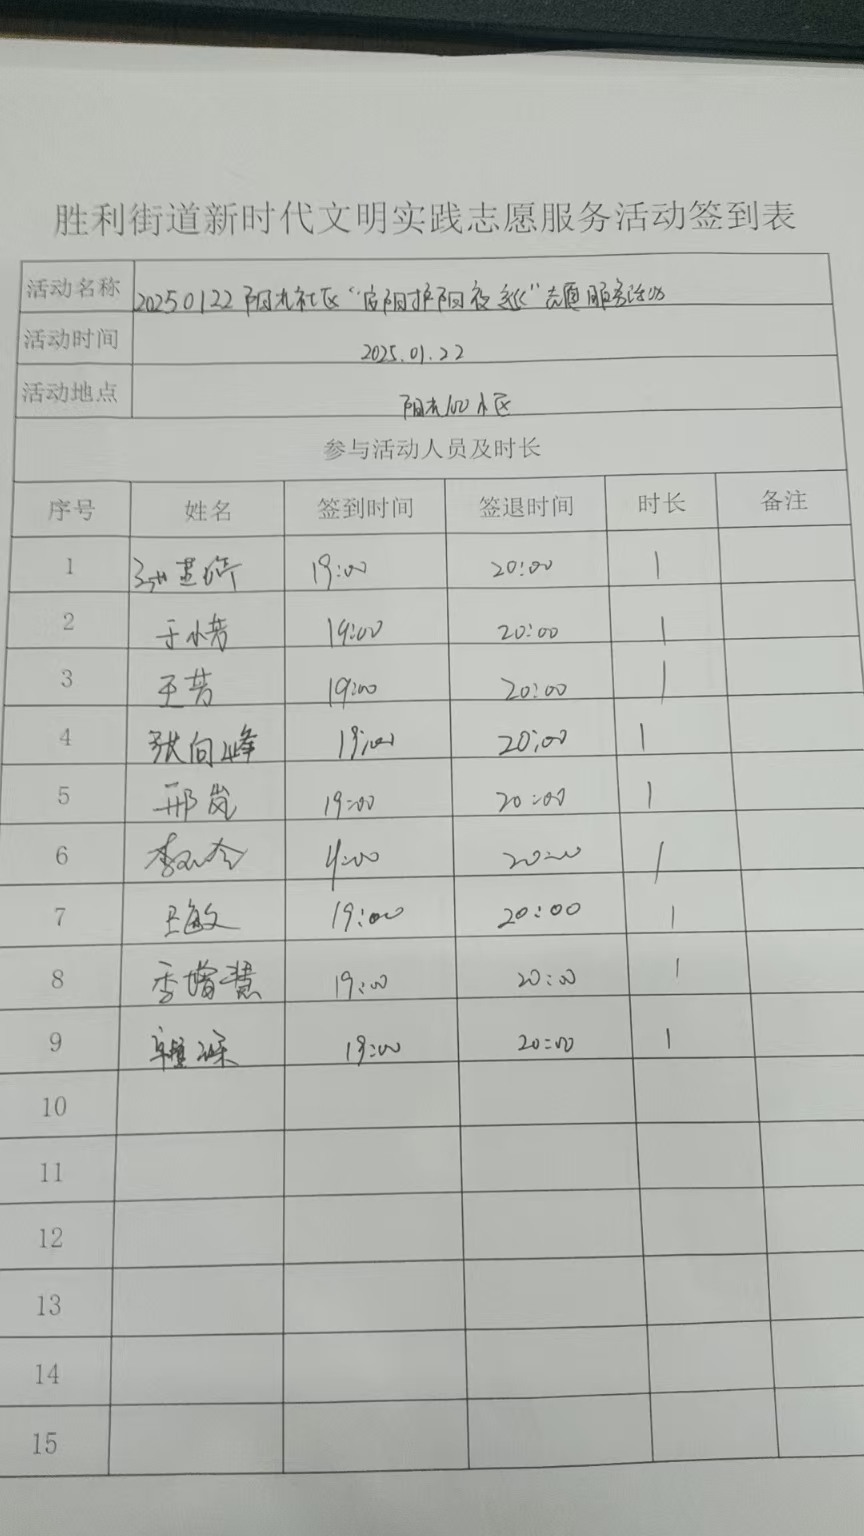 胜利街道新时代文明实践志愿服务活动签到表
活动名称 20250122阳光社区“ 护阳夜巡”志愿服务活动
活动时间 2025.01.22
活动地点 阳光100小区
参与活动人员及时长
序号 姓名 签到时间 签退时间 时长 备注
1 19:00 20:00 1
2 于小芳 19:00 20:00 1
3 王芳 19:00 20:00 1
4 张向峰 19:00 20:00 1
5 邢岚 19:00 20:00 1
6 李 20:00 1
7 王敏 19:00 20:00 1
8 李增慧 19:00 20:00 1
9 19:00 20:00 1
10
11
12
13
14
15